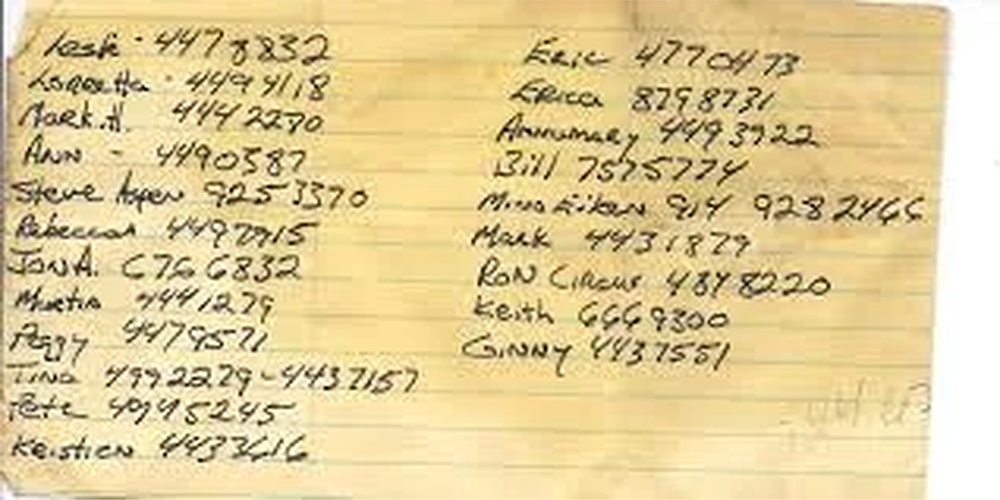 Lesk - 4478832
Lorretta - 4494118
Mark.H. 4442270
ANN - 4490587
Steve Aspen 9253370
Rebecca 4497915
JON A. 6766832
Martin 4441279
Peggy 4479571
Tina 4992279-4437157
Pete 4945245
Keistien 4433616
Eric 4770473
Erica 8798731
Annmary 4493922
Bill 7575774
914 9282466
Mark 4431879
RON Circus 4848220
Keith 6669300
GINNY 4437551